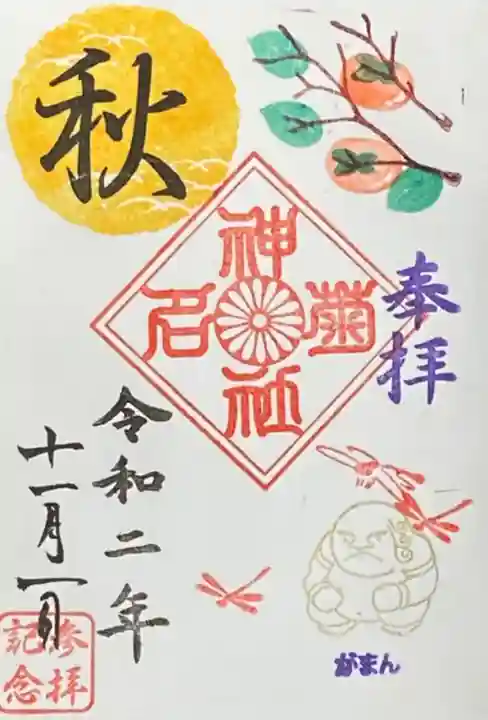 秋
奉拝
菊名神社
がまん
令和二年
十一月一日
参拝
記念